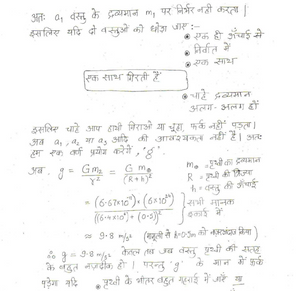 अतः a₁ वस्तु के द्रव्यमान m₁ पर निर्भर नहीं करता।
इसलिए यदि दो वस्तुओं को छोड़ा जाए :-
• एक ही ऊँचाई से
• निर्वात में
• एक साथ
एक साथ गिरती हैं
• चाहे द्रव्यमान
अलग-अलग हों
इसलिए चाहे आप हाथी गिराओ या चूहा, फर्क नहीं पड़ता।
अब a₁, a₂ या a₃ आदि की आवश्यकता नहीं है। अतः
हम एक वर्ण प्रयोग करेंगे, 'g'.
अब g = Gmₑ/r² = GMₑ/(R+h)²
mₑ = पृथ्वी का द्रव्यमान
R = पृथ्वी की त्रिज्या
h = वस्तु की ऊँचाई
= (6.67×10⁻¹¹)(6×10²⁴)/((6.4×10⁶)+(0.5))² सभी मानक
इकाई में
≈ 9.8 m/s² h=0.5m को
∴ g = 9.8 m/s² केवल तब जब वस्तु पृथ्वी की सतह
के बहुत नज़दीक हो। परन्तु 'g' के मान में फर्क
पड़ेगा यदि • पृथ्वी के भीतर बहुत गहराई में जाएं या